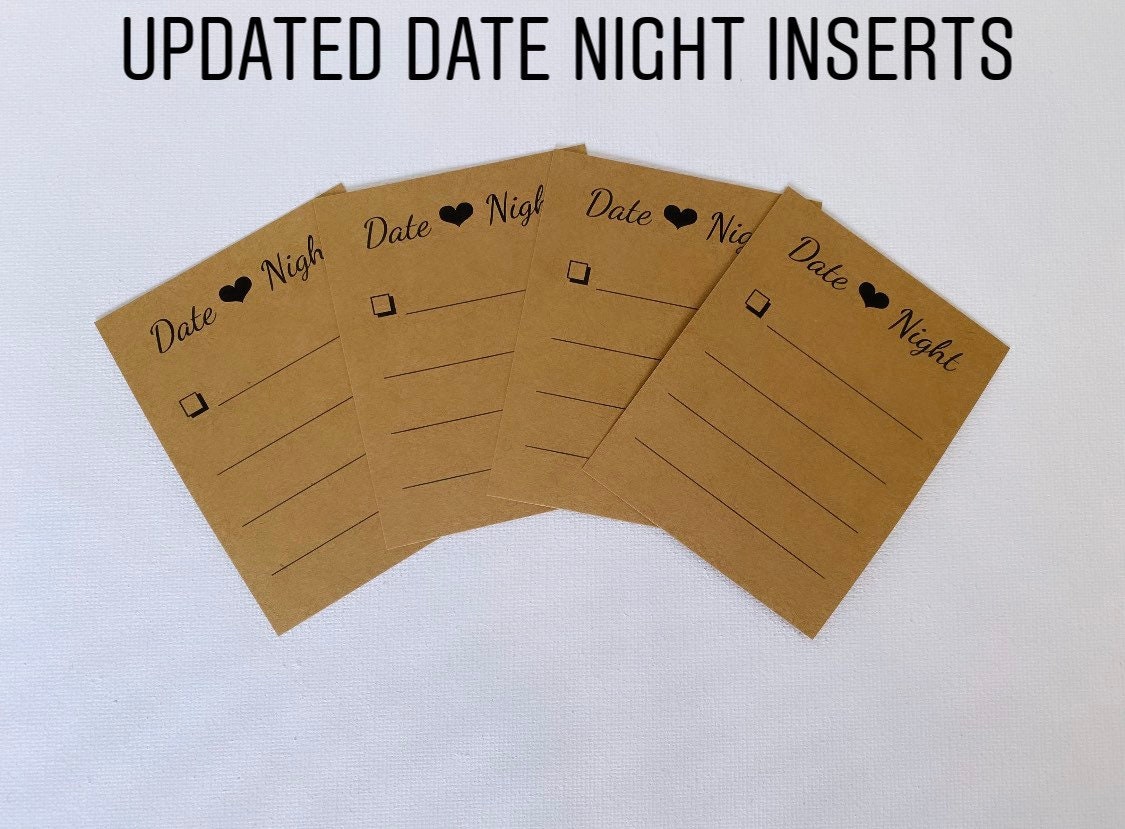 UPDATED DATE NIGHT INSERTS
Date ♥ Nigh
Date ♥ Nigh
Date ♥ Nig
Date ♥ Night